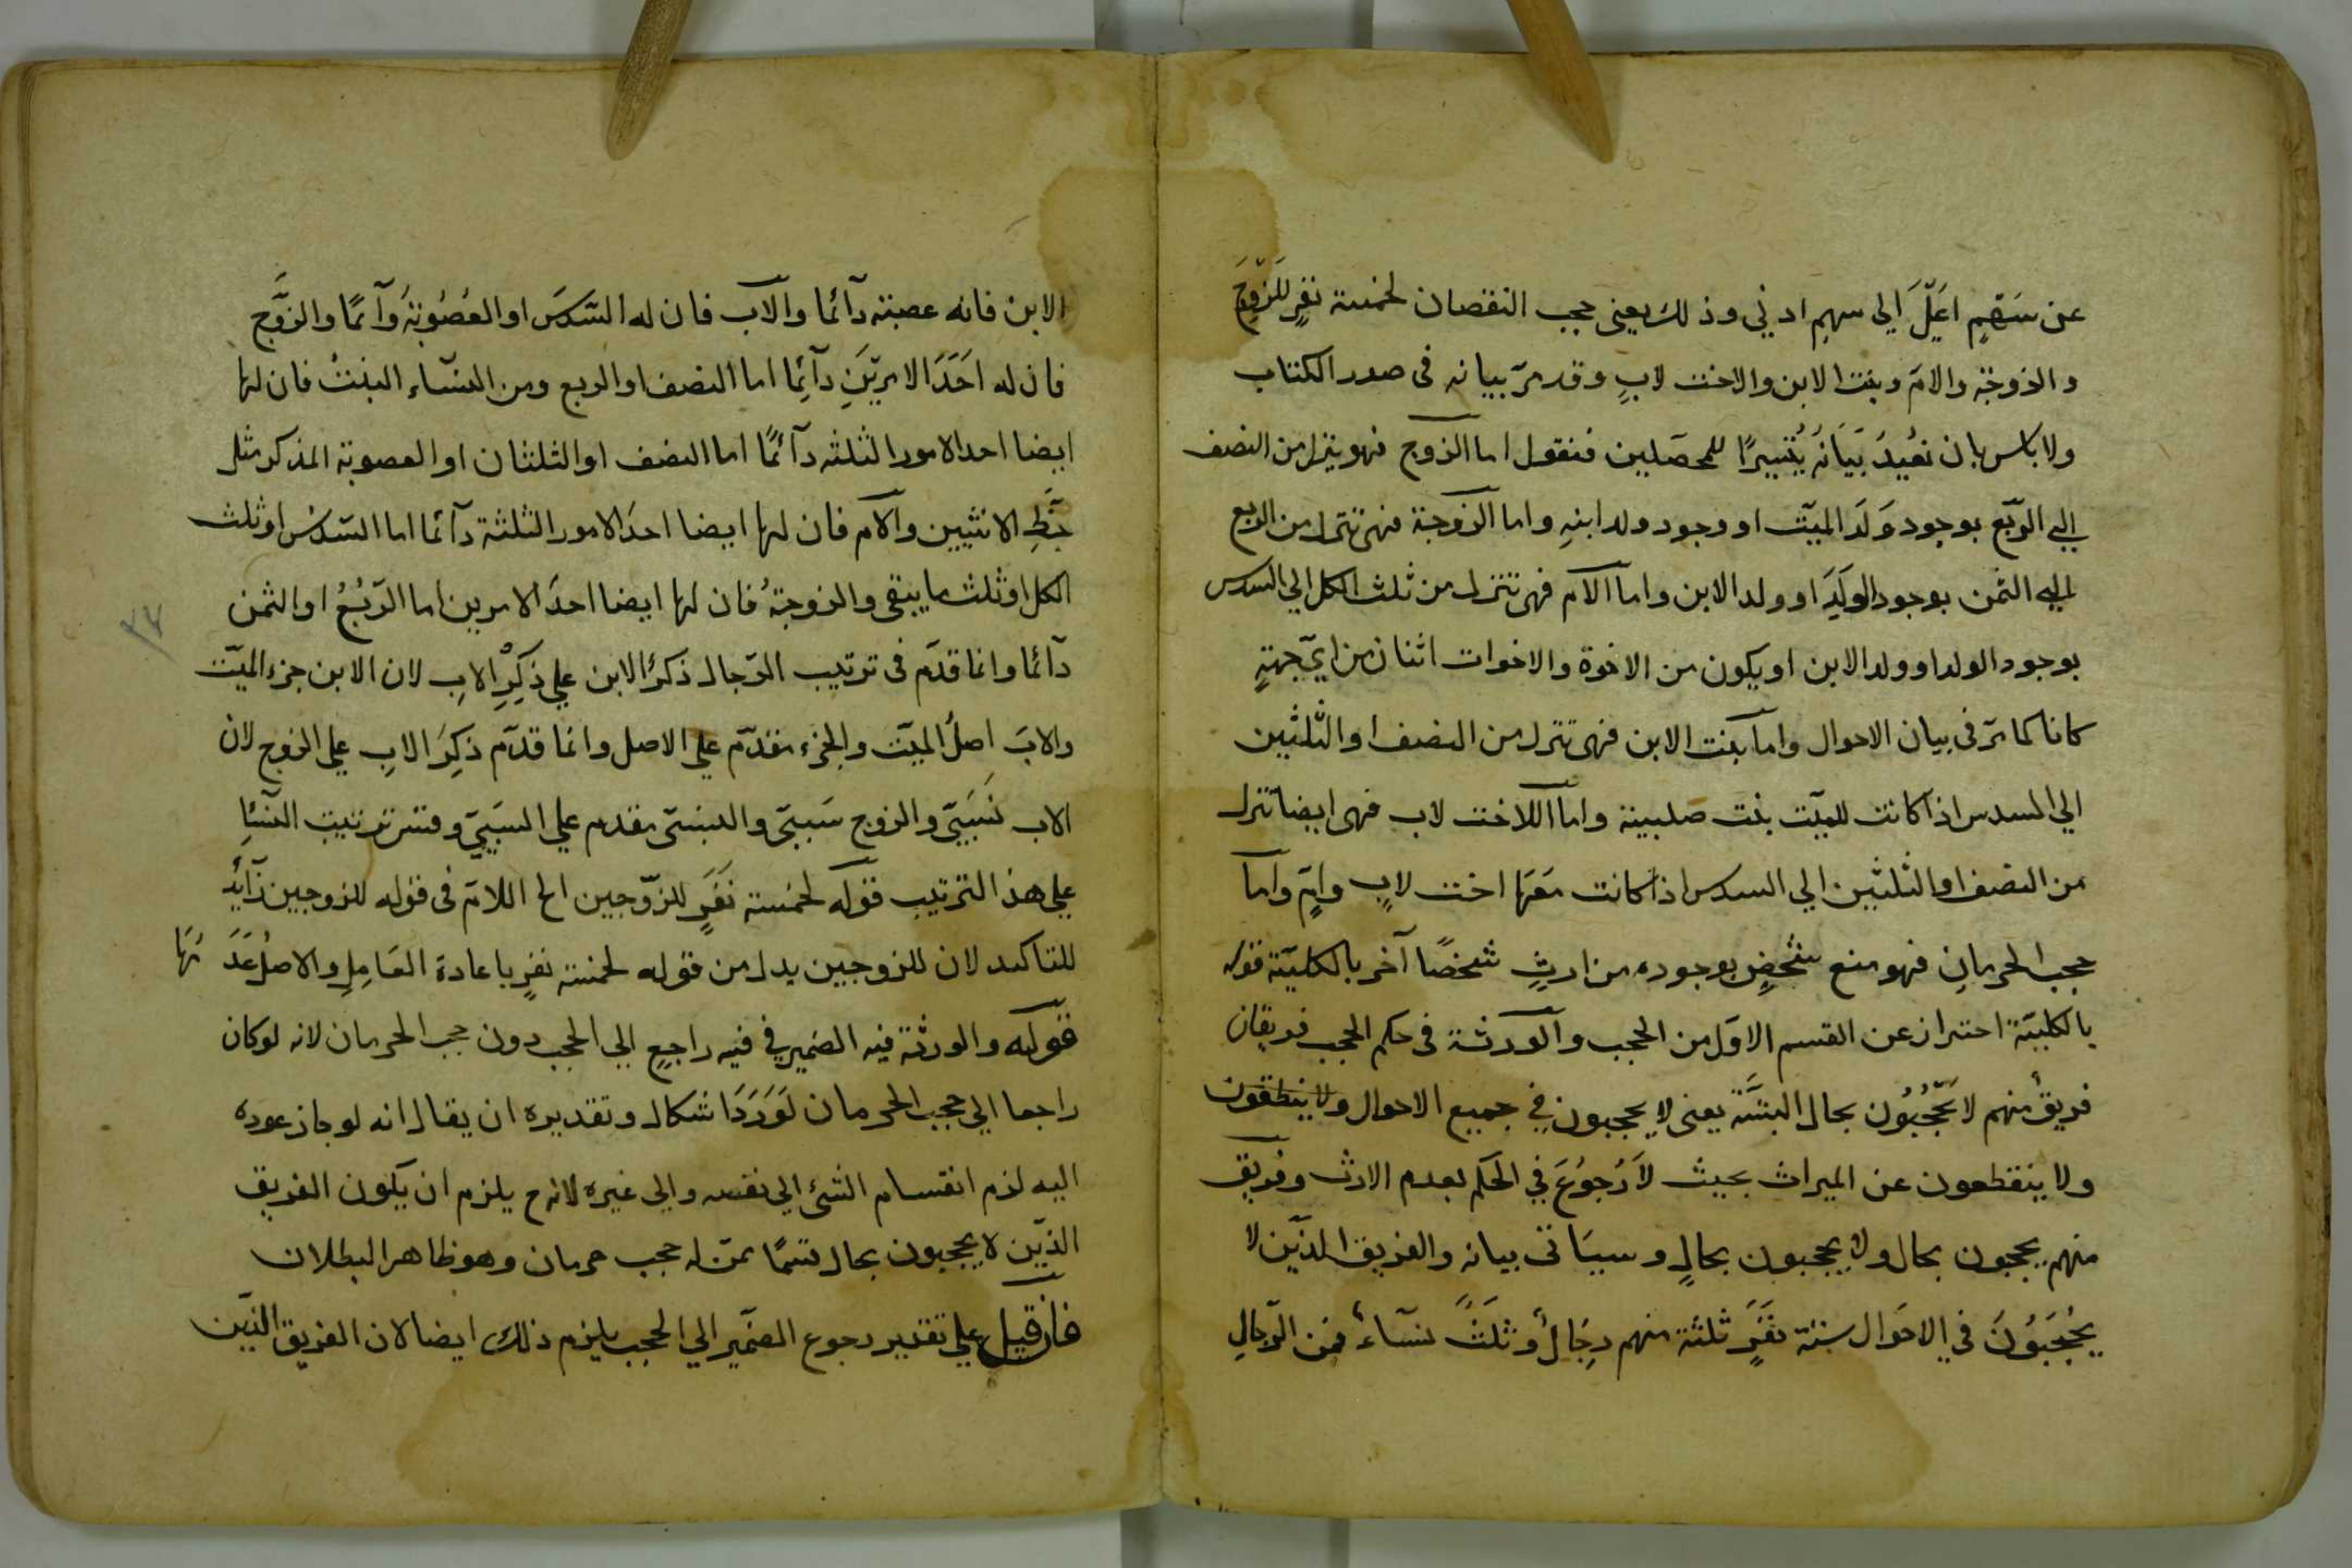 عن سَهْمٍ اعَلّ الى سهمٍ ادني وذلك يعنى حجب النقصان لخمسة نفرٍ للزَّوجِ
والزوجة والام وبنت الابن والاخت لابٍ وقد مرّ بيانه فى صدر الكتاب
ولا باس بان نعُيدَ بَيَانَهُ يُتسيرًا للمحصّلين فنقول اما الزوج فهو ينزل من النصف
الي الربّع بوجود وَلَد الميّت او وجود ولد ابنهِ واما الزوجة فهى تنزل من الربع
اليه الثمن بوجود الولَدِ او ولد الابن واما الام فهى تنزل من ثلث الكل الي السدس
بوجود الولد او ولد الابن او يكون من الاخوة والاخوات اثنان من ايّ جهتهٍ
كانا كما مرّ فى بيان الاحوال واما بنت الابن فهى تنزل من النصف او الثّلثين
الي السدس اذا كانت للميّت بنت صلبية واما اللاخت لاب فهى ايضا تنزل
من النصف او الثلثين الي السدس اذا كانت مَعَهَا اخت لابٍ وامٍّ واما
حجب الحرمانِ فهو منع شخصٍ بوجوده من ارثٍ شخصًا آخر بالكليّة قوله
بالكليّة احتراز عن القسم الاوّل من الحجب والورثة فى حكم الحجب فريقان
فريقٌ منهم لا يَحْجُبُون بحال البتَّة يعنى لا يحجبون في جميع الاحوال ولا ينطقون
ولا ينقطعون عن الميراث بحيث لاَ رُجوُعَ في الحَكم بعدم الارث وفريق
منهم يحجبون بحال ولا يحجبون بحالٍ وسيَاتى بيانه والفريق الذّين لا
يُحْجَبُونَ في الاحَوال ستة نفَرٍَ ثلثة منهم رِجَالٌ وثلَثٌ نسَآءٌ فمن الرّجالِ
الابن فانه عصبته دآئما والاب فان له السّدسَ او العُصُوبَةُ دآئمًا والزوَّج
فان له احَدَ الامريَنِ دآئِما اما النصف او الربع ومن النسّاء البنتُ فان لها
ايضا احد الامور الثلثه دآئمًا اما النصف او الثلثان او العصوبة المذكر مثل
حَظِّ الانثيين والام فان لها ايضا احدَ الامور الثلثة دآئما اما السّدس او ثلث
الكل او ثلث ما يبقى والزوجةُ فان لها ايضا احدَ الامرين اما الرّبُعُ او الثمن
دآئما وانما قدّم فى ترتيب الرّجال ذكرُ الابن علي ذِكْرِ الابِ لان الابن جزء الميّت
والابَ اصلُ الميّت والجزء مقدّم علي الاصل وانما قدّم ذِكرَ الابِ علي الزوج لان
الاب نَسَبيّ والزوج سَببيّ والنسبىّ مقدم علي السَبَبيّ وقس ترتيب النّساِ
علي هذ الترتيب قوله لخمسة نَفَرٍ للزّوجين الخ اللامّ فى قوله للزوجين زَآئِدٌ
للتاكيد لان للزوجين بدل من قوله لخمسة نفرٍ باعادة العَامِلِ والاصلُ عَدَ مُهَا
قوله والورثة فيه الضمير في فيه راجع الي الحجب دون حجب الحرمان لانه لو كان
راجعا الي حجب الحرمان لَوَرَدَ اشكال وتقديره ان يقال انه لو جاز عوده
اليه لزم انقسام الشئ الي نفسه والى غيره لانه ح يلزم ان يكون الفريق
الذّين لا يحجبون بحال قسمًا ممّن له حجب حرمان وهو ظاهر البطلان
فان قيل علي تقدير رجوع الضمّير الي الحجب يلزم ذلك ايضا لان الفريق الذّين